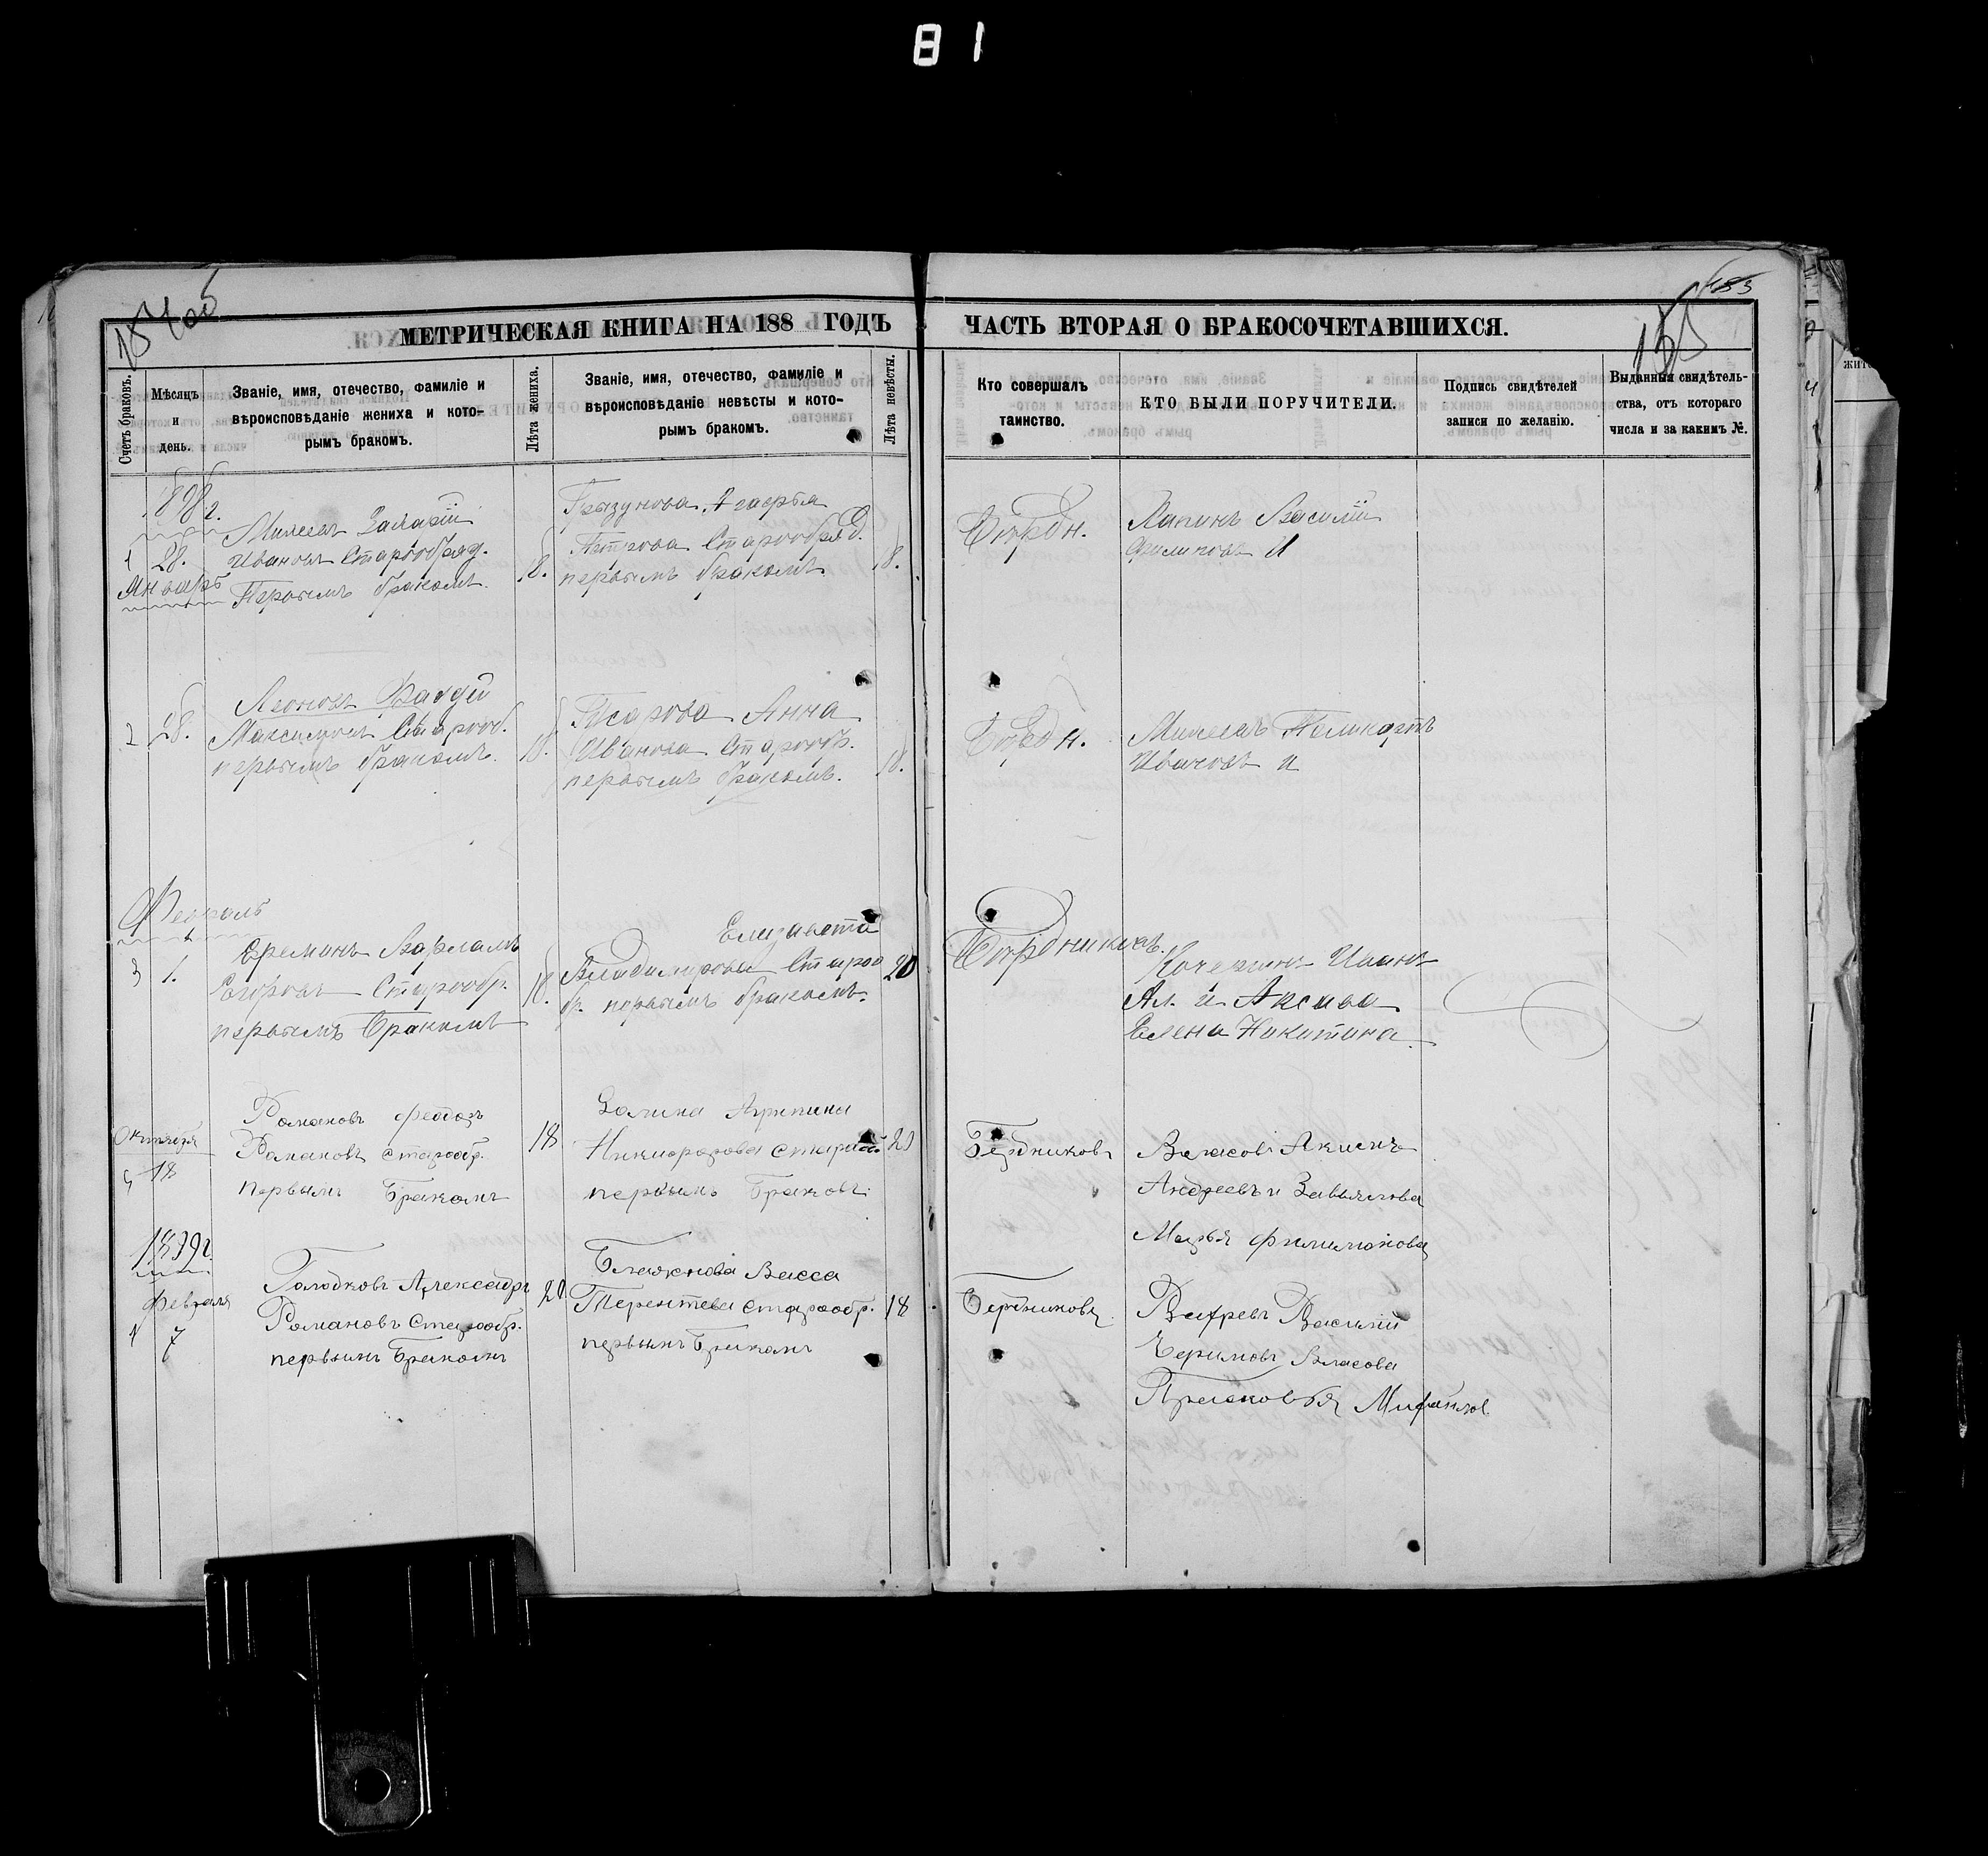 81
154 об
155
МЕТРИЧЕСКАЯ КНИГА НА 188 ГОДЪ
ЧАСТЬ ВТОРАЯ О БРАКОСОЧЕТАВШИХСЯ.
Счетъ браковъ.
Мѣсяцъ
и
день.
Званіе, имя, отечество, фамиліе и
вѣроисповѣданіе жениха и кото-
рымъ бракомъ.
Лѣта жениха.
Званіе, имя, отечество, фамиліе и
вѣроисповѣданіе невѣсты и кото-
рымъ бракомъ.
Лѣта невѣсты.
Кто совершалъ
таинство.
КТО БЫЛИ ПОРУЧИТЕЛИ.
Подпись свидѣтелей
записи по желанію.
Выданныя свидѣтель-
ства, отъ котораго
числа и за какимъ №.
1898 г.
1 28.
Январь
Ивановъ Старообряд.
Первымъ бракомъ.
18.
Грызунова Агафья
Петрова Старообряд.
первымъ бракомъ.
18.
Лапинъ Василій
Филиповъ И
2 28.
Леоновъ Фаддей
Максимовъ Старооб.
первымъ бракомъ.
18.
Писарова Анна
Иванова Старообр.
первымъ бракомъ.
18.
Поликарпъ
Ивановъ и
Февраль
3 1.
Ереминъ Варламъ
Егоровъ Старообр.
первымъ бракомъ
18.
Елизавета
Владимирова Старо
бр. первымъ бракомъ.
20
Бердниковъ.
Кочергинъ Иванъ
Ал. и
Елена Никитина
Октября
4 18
Романовъ
Романовъ старообр.
первымъ Бракомъ
18
Никифорова старооб.
первымъ Бракомъ
20
Бердниковъ
Власовъ Акимъ
Андреевъ и Завьялова
Марья Филимонова
1899 г.
Февраля
1 7
Голодковъ Александръ
Романовъ Старообр.
первымъ Бракомъ
20
Блажнова Васса
Терентева старообр.
первымъ Бракомъ
18
Бердниковъ
Василій
Власова
Прасковья